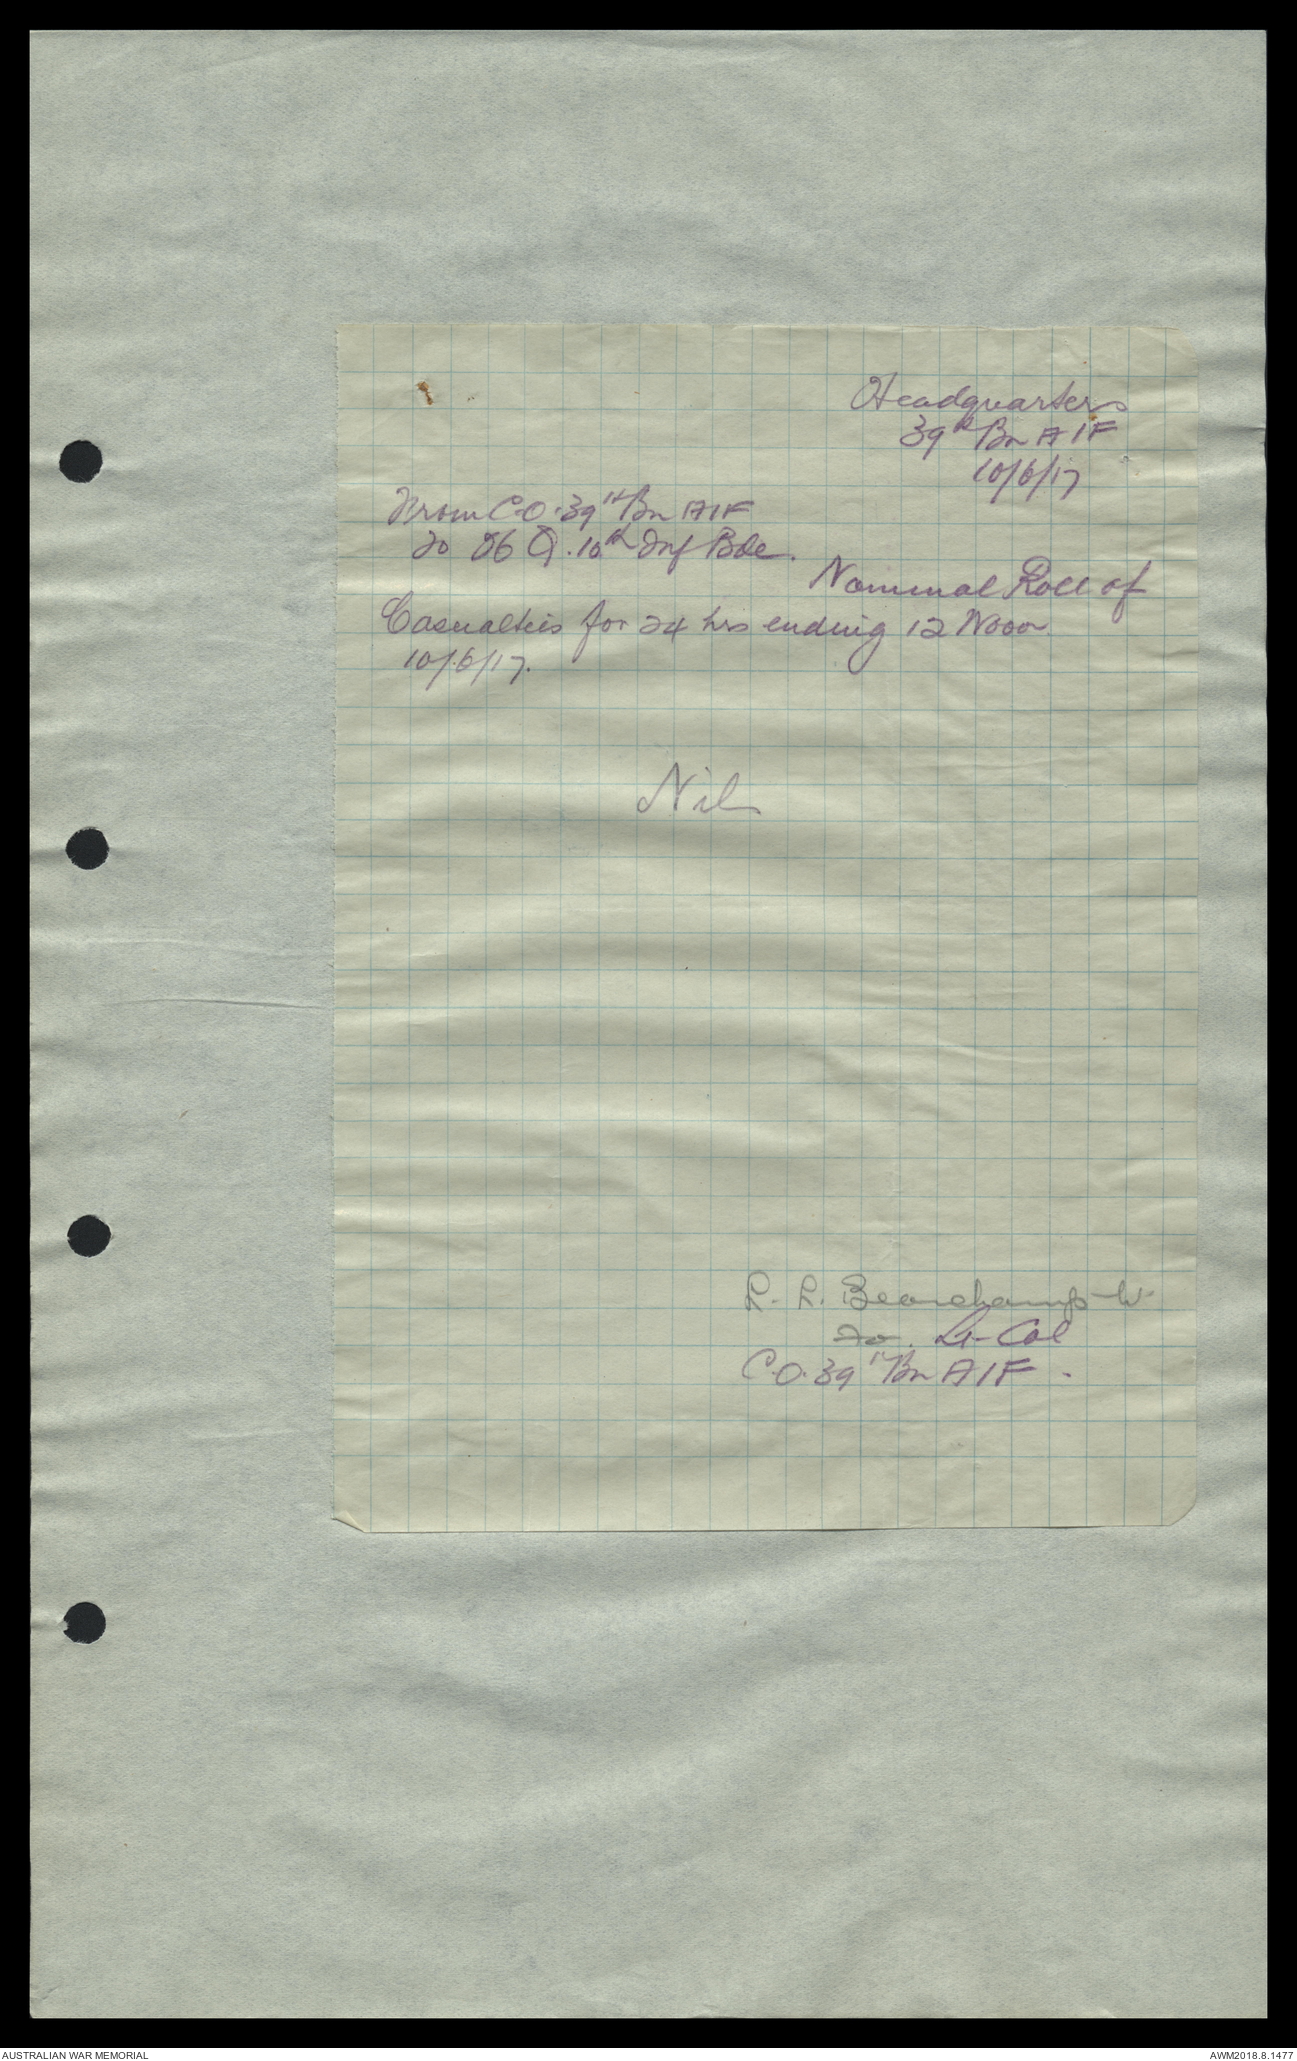 Headquarters
39th Bn AIF
10/6/17
From C.O. 39th Bn AIF
To 10th Inf Bde.
Nominal Roll of
Casualties for 24 hrs ending 12 Noon
10/6/17.
Nil
R. R. Beauchamp Lt
for. Lt-Col
C.O. 39th Bn AIF.
AUSTRALIAN WAR MEMORIAL
AWM2018.8.1477